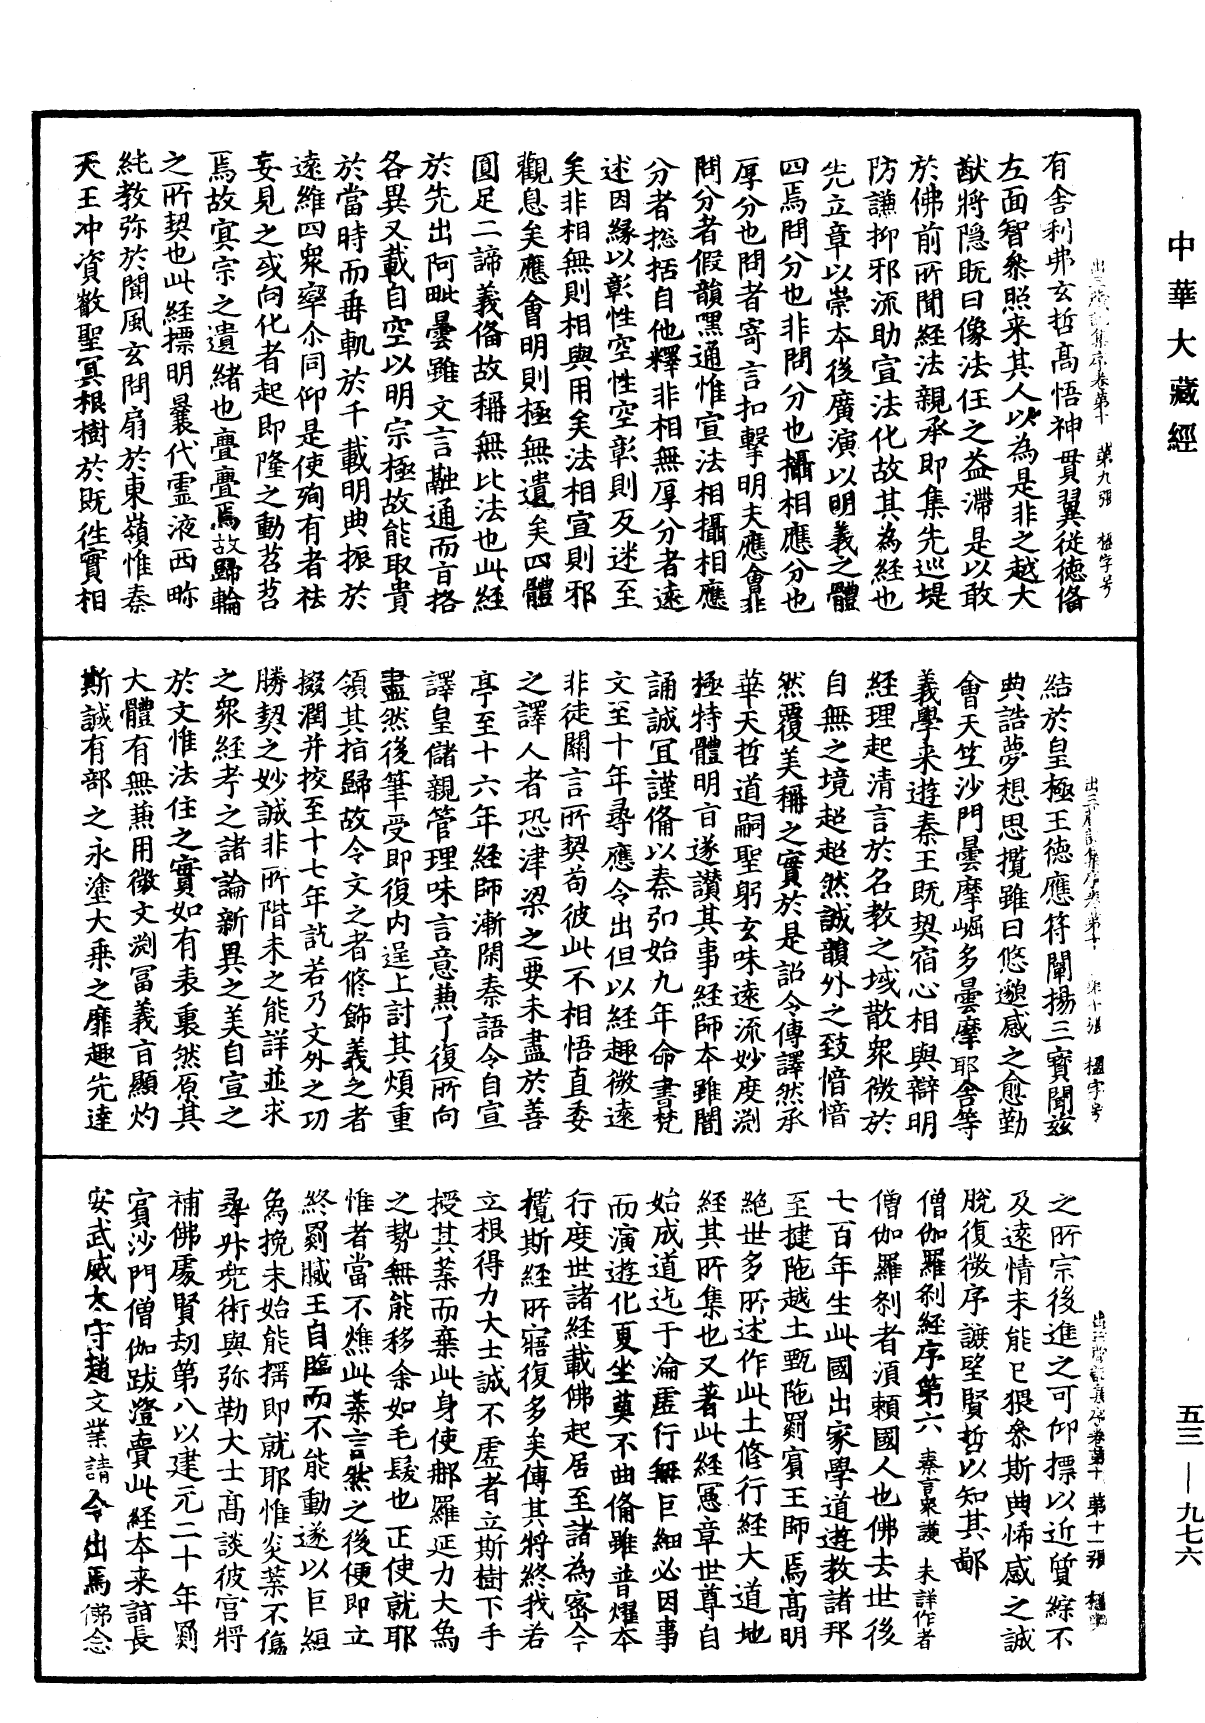 中華大藏經
出三藏記集序卷第十　第九張　楹字号
有舍利弗玄哲高悟神貫翼從德備
左面智叅照来其人以為是非之越大
猷將隐既曰像法任之益滯是以敢
於佛前所聞經法親承即集先巡堤
防謙抑邪流助宣法化故其為經也
先立章以崇本後廣演以明義之體
四焉問分也非問分也攝相應分也
厚分也問者寄言扣擊明夫應會非
問分者假韻嘿通惟宣法相攝相應
分者捴括自他釋非相無厚分者逺
述因緣以彰性空性空彰則反迷至
矣非相無則相與用矣法相宣則邪
觀息矣應會明則極無遺矣四體
圓足二諦義俻故稱無比法也此經
於先出阿毗曇雖文言融通而盲挌
各異又載自空以明宗極故能取貴
於當時而垂軌於千載明典振於
逺維四衆率尒同仰是使殉有者祛
妄見之或向化者起即隆之動苕苕
焉故㝠宗之遺緒也亹亹焉故歸輪
之所契也此經摽明曩代霊液西畛
純教弥於閬風玄問扇於東嶺惟秦
天王冲資叡聖冥根樹於既徃實相
出三藏記集序卷第十　第十張　楹字号
結於皇極王德應符闡揚三寳聞兹
典誥夢想思攬雖曰悠邈感之愈勤
會天竺沙門曇摩崛多曇摩耶舍等
義學来遊秦王既契宿心相與辯明
經理起清言於名教之域散衆微於
自無之境超超然誠韻外之致愔愔
然覆美稱之實於是詔令傳譯然承
華天哲道嗣聖躬玄味逺流妙度渕
極特體明㫖遂讃其事經師本雖闇
誦誠冝謹俻以秦弘始九年命書梵
文至十年尋應令出但以經趣微逺
非徒關言所契苟彼此不相悟直委
之譯人者恐津梁之要未盡於善
亭至十六年經師漸閑秦語令自宣
譯皇儲親管理味言意兼了復所向
盡然後筆受即復内逞上討其煩重
領其指歸故令文之者修飾義之者
掇潤并挍至十七年訖若乃文外之功
勝契之妙誠非所階未之能詳並求
之衆經考之諸論新異之美自宣之
於文惟法住之實如有表裏然原其
大體有無兼用微文渕冨義㫖顯灼
斯誠有部之永塗大乗之靡趣先達
出三藏記集序卷第十　第十一張　楹字号
之所宗後進之可仰摽以近質綜不
及逺情未能已猥叅斯典怖感之誠
脱復微序謬望賢哲以知其鄙
僧伽羅刹經序第六　秦言衆護　未詳作者
僧伽羅刹者須頼國人也佛去世後
七百年生此國出家學道遊教諸邦
至揵陁越土甄陁罽賓王師焉高明
絶世多所述作此土修行經大道地
經其所集也又著此經憲章世尊自
始成道迄于淪虚行無巨細必因事
而演遊化夏坐莫不曲俻雖普耀本
行度世諸經載佛起居至諸為密今
攬斯經所寤復多矣傳其將終我若
立根得力大士誠不虚者立斯樹下手
授其葉而棄此身使郍羅延力大為
之勢無能移余如毛髮也正使就耶
惟者當不燋此葉言然之後便即立
終罽膩王自臨而不能動遂以巨絙
象挽未始能揺即就耶惟炎葉不傷
尋外兜術與弥勒大士髙談彼宫將
補佛處賢劫第八以建元二十年罽
賓沙門僧伽跋澄賫此經本来詣長
安武威太守趙文業請令出焉佛念
五三—九七六